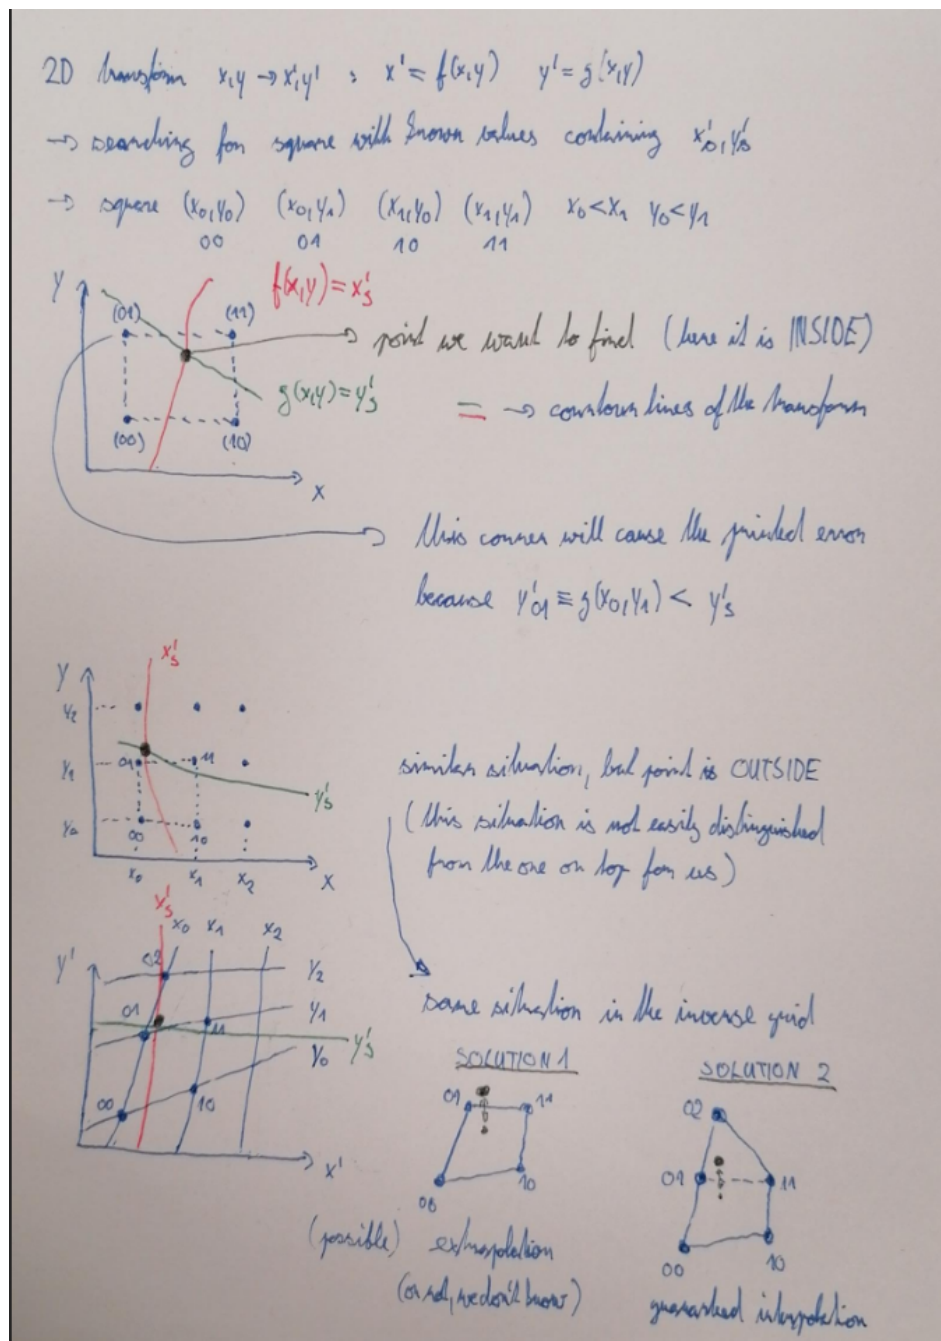 2D transform x,y → x',y' : x' = f(x,y) y' = g(x,y)
→ searching for square with known values containing x's, y's
→ square (x0,y0) (x0,y1) (x1,y0) (x1,y1) x0<x1 y0<y1
00 01 10 11
f(x,y) = x's
Y
(01) (11)
point we want to find (here it is INSIDE)
g(x,y) = y's
= → countour lines of the transform
(00) (10)
X
this corner will cause the printed error
because y'01 ≡ g(x0,y1) < y's
x's
Y
y2
y1 01 11
y's
y0 00 10
x0 x1 x2 X
similar situation, but point is OUTSIDE
(this situation is not easily distinguished
from the one on top for us)
x's x0 x1 x2
Y' 02 y2
01 11 y1
y's
y0
00 10
X'
same situation in the inverse grid
SOLUTION 1
01 11
00 10
(possible) extrapolation
(or not, we don't know)
SOLUTION 2
02
01 11
00 10
guaranteed interpolation